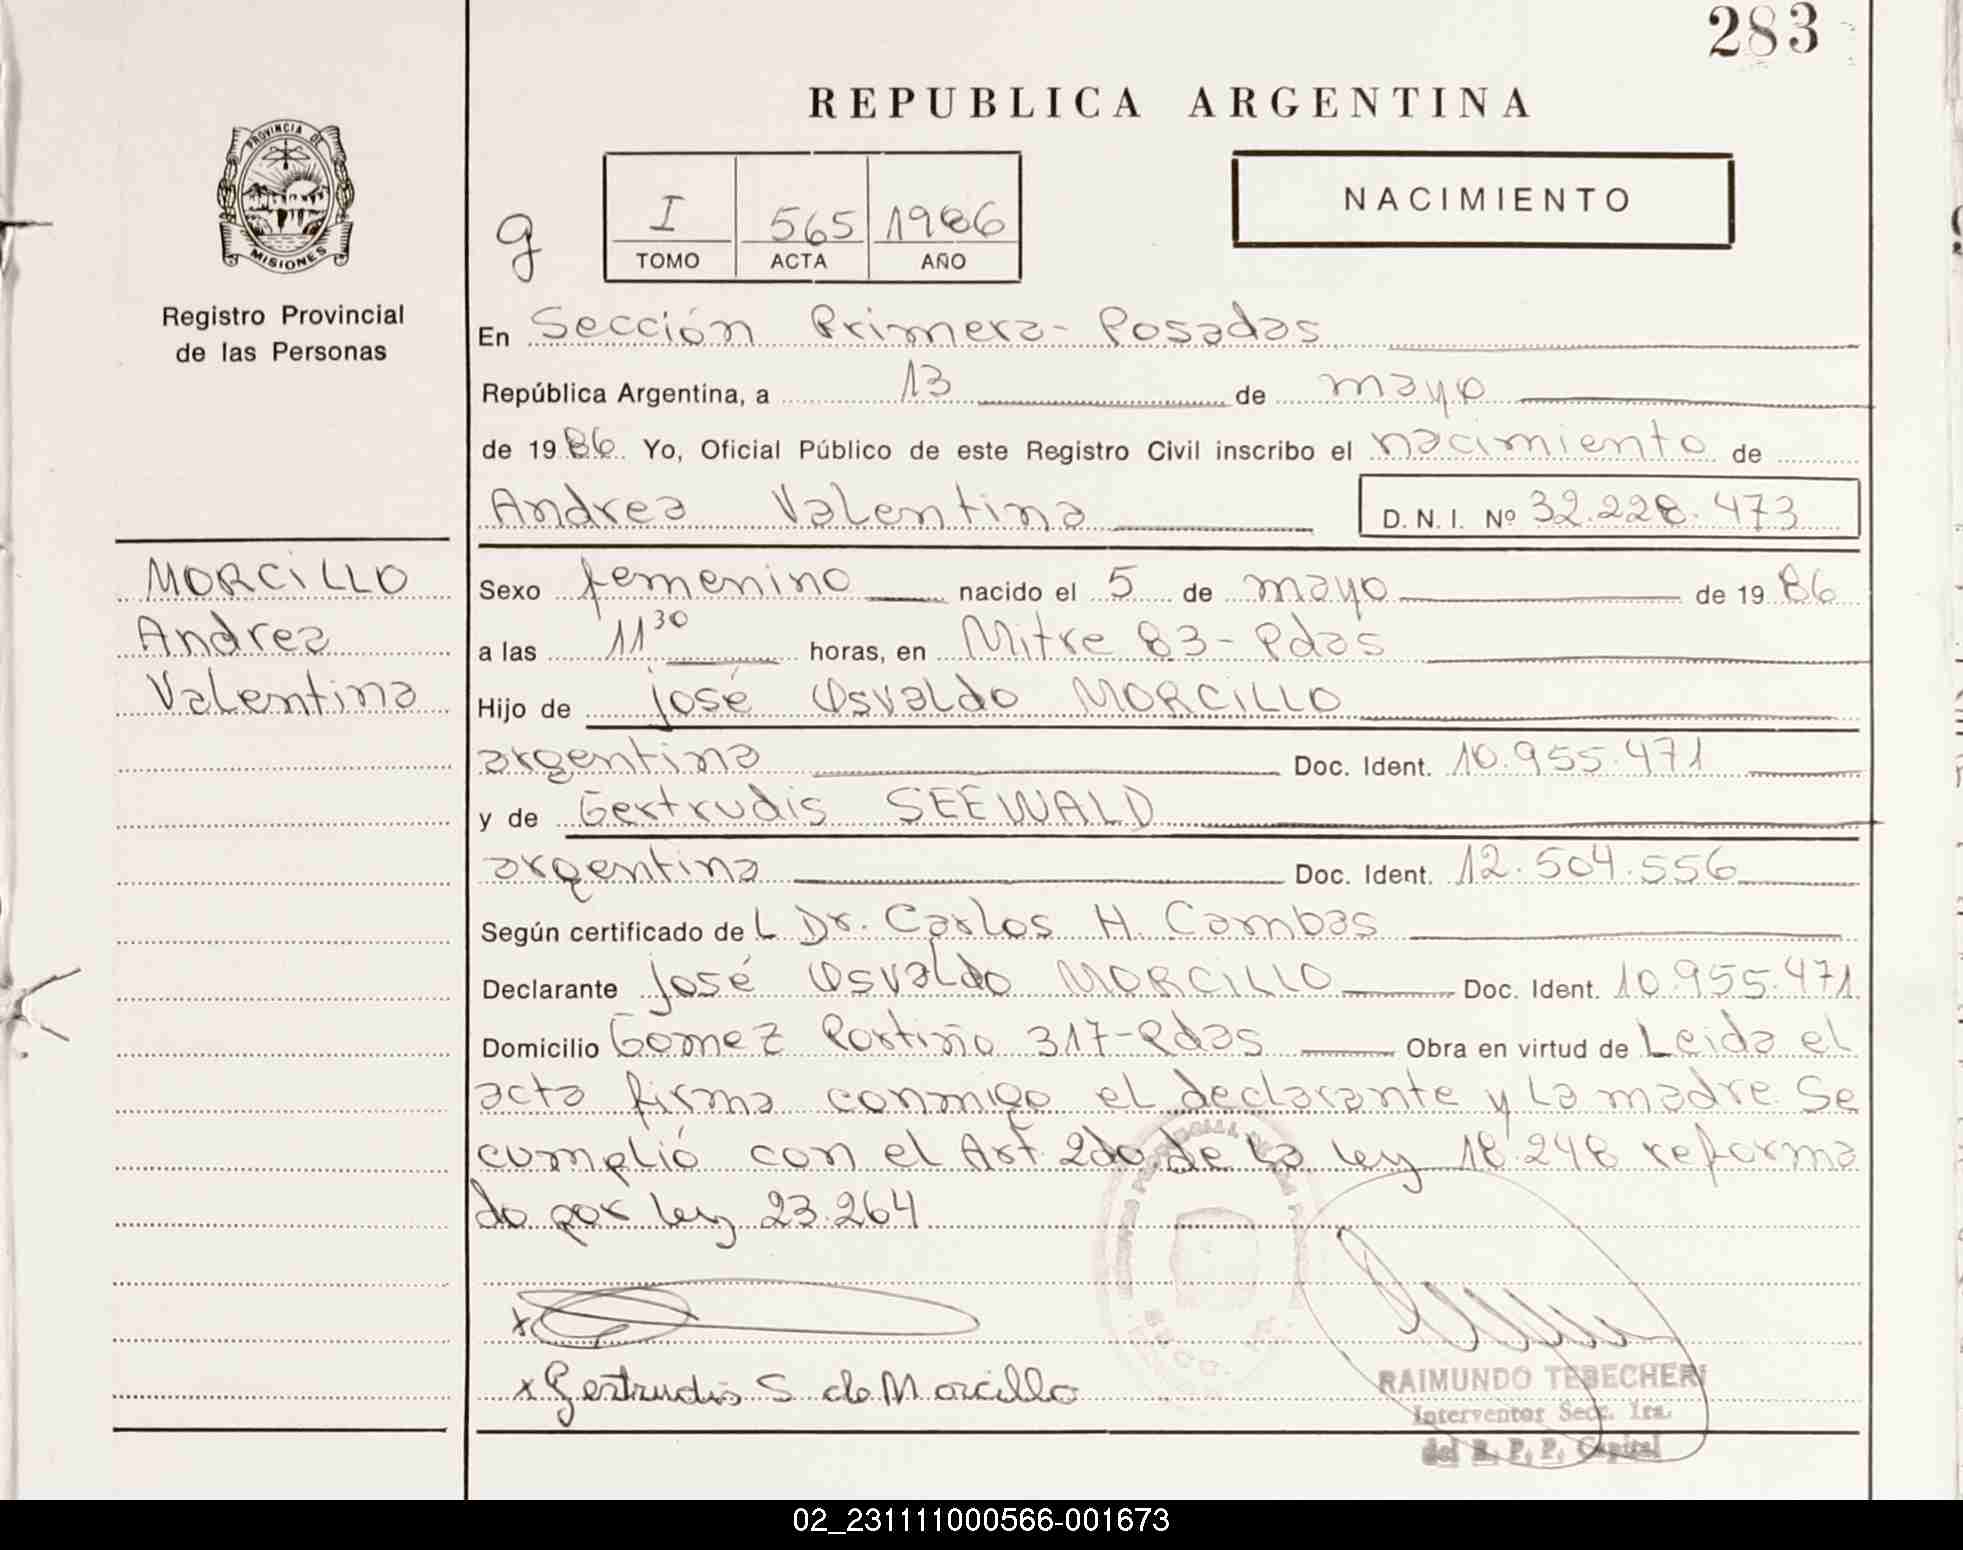 283
REPUBLICA ARGENTINA
PROVINCIA DE
MISIONES
Registro Provincial
de las Personas
g
I 565 1986
TOMO ACTA AÑO
NACIMIENTO
En Sección Primera - Posadas
República Argentina, a 13 de mayo
de 19 86 Yo, Oficial Público de este Registro Civil inscribo el nacimiento de
Andrea Valentina D. N. I. Nº 32.228.473
MORCILLO
Andrea
Valentina
Sexo femenino nacido el 5 de mayo de 19 86
a las 11 30 horas, en Mitre 83 - Pdas
Hijo de José Osvaldo MORCILLO
argentina Doc. Ident. 10.955.471
y de Gertrudis SEEWALD
argentina Doc. Ident. 12.504.556
Según certificado de L Dr. Carlos H. Cambas
Declarante José Osvaldo MORCILLO Doc. Ident. 10.955.471
Domicilio Gomez Portiño 317 - Pdas Obra en virtud de Leida el
acta firma conmigo el declarante y la madre. Se
cumplió con el Art. 2do de la ley 18.248 reforma
do por ley 23.264
x
x Gertrudis S de Morcillo
RAIMUNDO TEBECHERI
Interventor Secc. 1ra.
del R. P. P. Capital
02_231111000566-001673